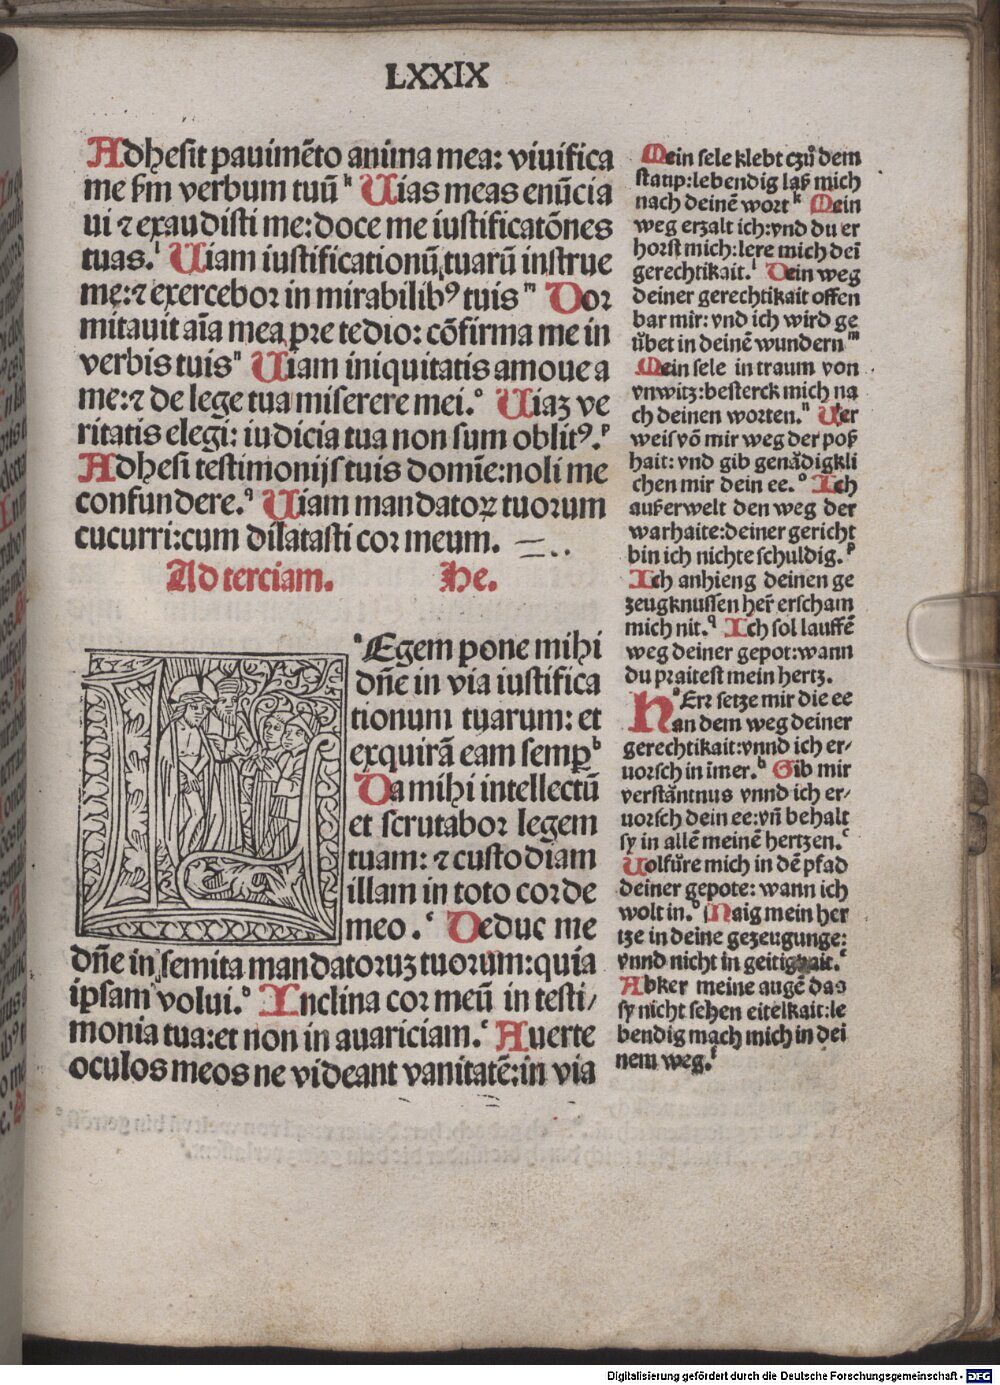 LXXIX
Adhesit pauimēto anima mea: viuifica
me ẜm verbum tuū k Uias meas enūcia
ui ⁊ exaudisti me: doce me iustificatōnes
tuas. l Uiam iustificationū tuarū instrue
me: ⁊ exercebor in mirabilibꝰ tuis m Dor
mitauit aīa mea pre tedio: cōfirma me in
verbis tuis n Uiam iniquitatis amoue a
me: ⁊ de lege tua miserere mei. o Uiaʒ ve
ritatis elegi: iudicia tua non sum oblitꝰ. p
Adhesi testimonijs tuis domīe: noli me
confundere. q Uiam mandatoꝝ tuorum
cucurri: cum dilatasti cor meum.
Ad terciam. He.
a Egem pone mihi
dn̄e in via iustifica
tionum tuarum: et
exquirā eam semp b
Da mihi intellectū
et scrutabor legem
tuam: ⁊ custodiam
illam in toto corde
meo. c Deduc me
dn̄e in semita mandatoruʒ tuorum: quia
ipsam volui. d Inclina cor meū in testi/
monia tua: et non in auariciam. e Auerte
oculos meos ne videant vanitatē: in via
Mein sele klebt czů dem
staup: lebendig laß mich
nach deinē wort k Mein
weg erzalt ich: vnd du er
horst mich: lere mich dei
gerechtikait. l Dein weg
deiner gerechtikait offen
bar mir: vnd ich wird ge
ůbet in deinē wundern m
Mein sele in traum von
vnwitz: besterck mich na
ch deinen worten. n Uer
weis vō mir weg der poß
hait: vnd gib genådigkli
chen mir dein ee. o Ich
außerwelt den weg der
warhaite: deiner gericht
bin ich nichte schuldig. p
Ich anhieng deinen ge
zeugknussen her̄ erscham
mich nit. q Ich sol lauffē
weg deiner gepot: wann
du praitest mein hertz.
H a Err setze mir die ee
an dem weg deiner
gerechtikait: vnnd ich er/
uorsch in īmer. b Gib mir
verståntnus vnnd ich er/
uorsch dein ee: vn̄ behalt
sy in allē meinē hertzen. c
Uolfůre mich in dē pfad
deiner gepote: wann ich
wolt in. d Naig mein her
tze in deine gezeugunge:
vnnd nicht in geitigkait. e
Abker meine augē das
sy nicht sehen eitelkait: le
bendig mach mich in dei
nem weg. f
Digitalisierung gefördert durch die Deutsche Forschungsgemeinschaft - DFG